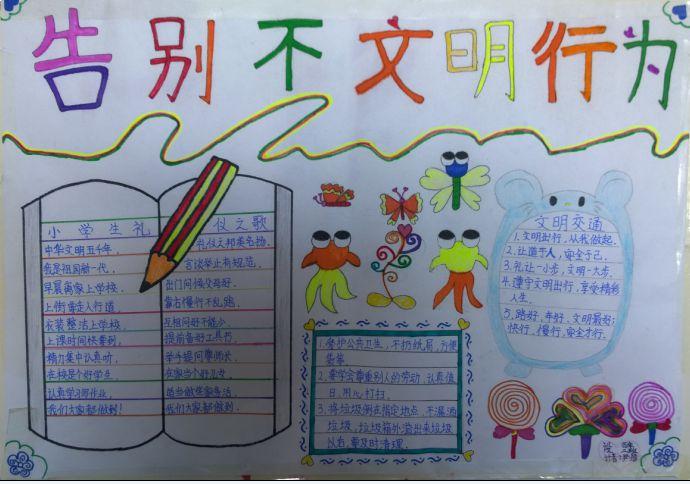 告别不文明行为
小学生礼仪之歌
中华文明五千年，
礼仪之邦美名扬。
我是祖国新一代，
言谈举止有规范。
早晨离家上学校，
出门问候父母好。
上街要走人行道，
靠右慢行不乱跑。
衣装整洁上学校，
互相问好不能少。
上课时间快要到，
提前备好工具书。
精力集中认真听，
举手提问尊师长。
在校是个好学生，
在家当个好儿女。
认真学习带作业，
我们大家都做到！
我们大家都做到。
1.爱护公共卫生，不扔纸屑、方便
袋等。
2.要学会尊重别人的劳动，认真值
日，用心打扫。
3.将垃圾倒在指定地点，不漏洒
垃圾，垃圾箱外溢出来垃圾
以右，要及时清理。
文明交通
1.文明出行，从我做起。
2.让道于人，安全于己。
3.礼让一小步，文明一大步。
4.遵守文明出行，享受精彩
人生。
5.路好，车好，文明最好；
快行，慢行，安全才行。